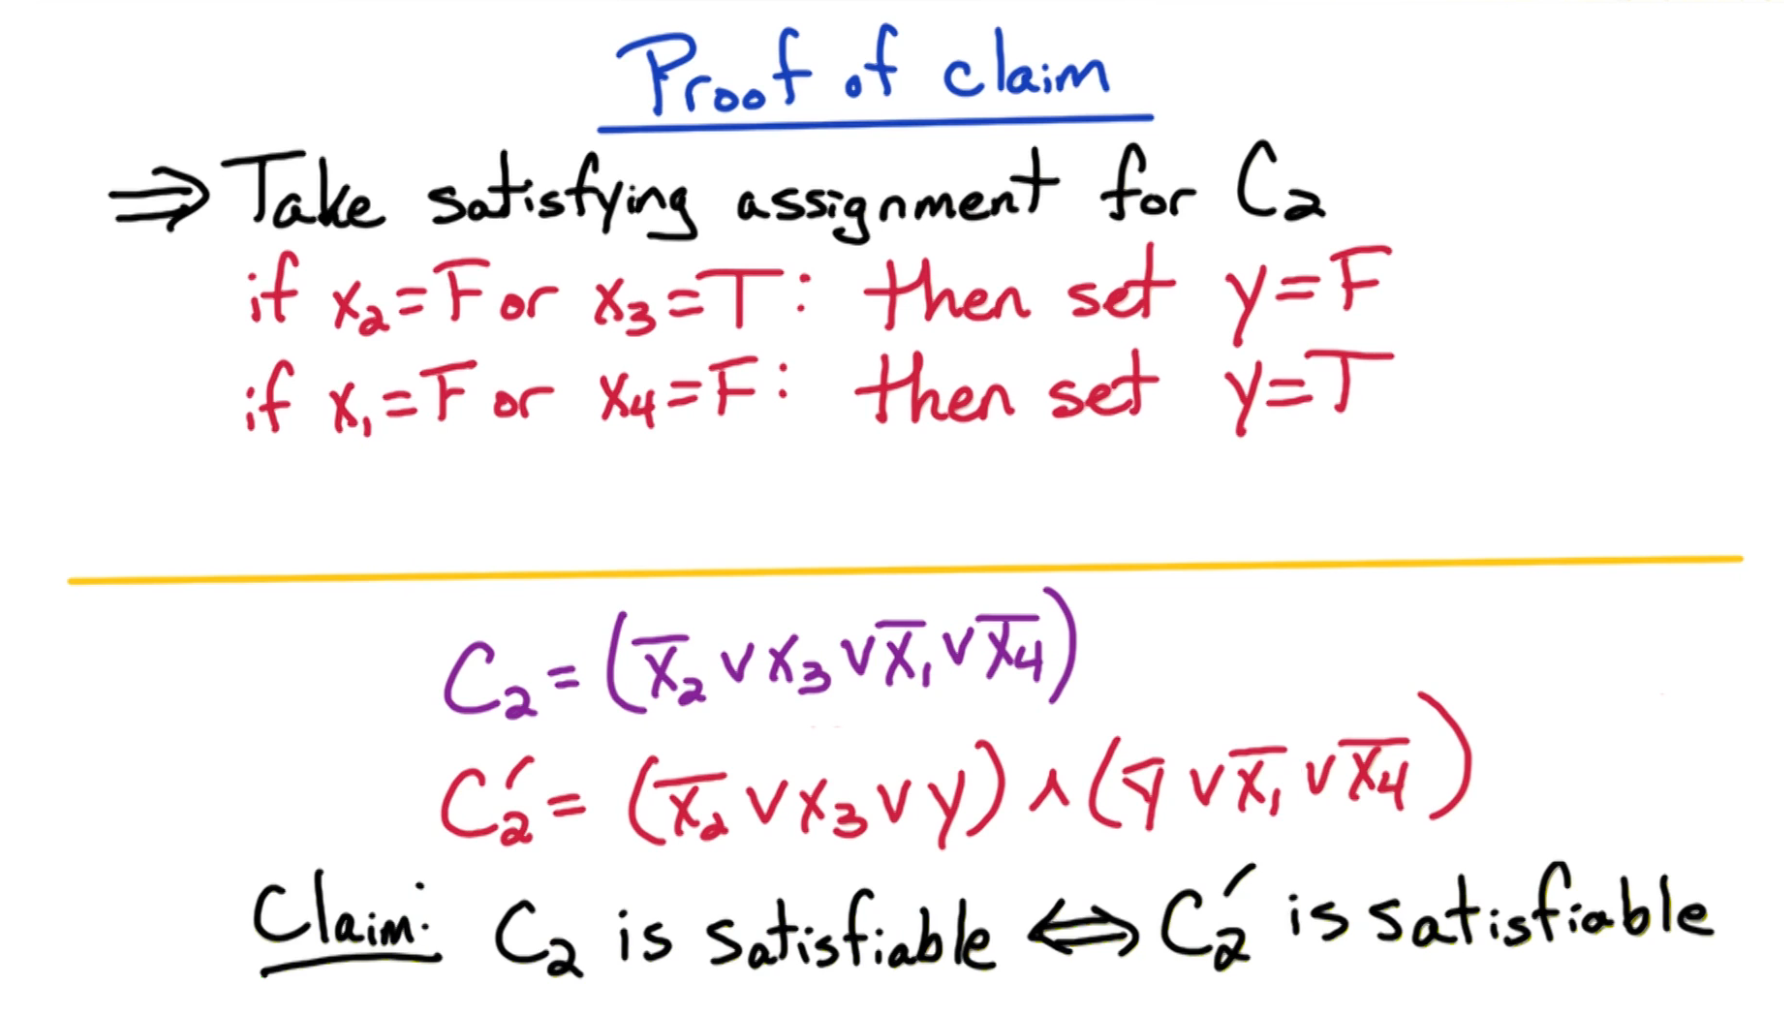 Proof of claim
⇒ Take satisfying assignment for C₂
if x₂=F or x₃=T: then set y=F
if x₁=F or x₄=F: then set y=T
C₂ = (x̅₂ ∨ x₃ ∨ x̅₁ ∨ x̅₄)
C₂′ = (x̅₂ ∨ x₃ ∨ y) ∧ (y̅ ∨ x̅₁ ∨ x̅₄)
Claim: C₂ is satisfiable ⇔ C₂′ is satisfiable